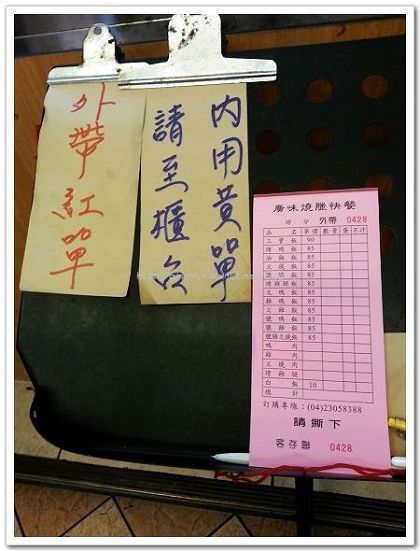 外帶紅單
內用黃單
請至櫃台
廣味燒臘快餐
時分 外帶 0428
品名 單價 數量 蛋 不汁
三寶飯 90
燒鴨飯 85
油雞飯 85
叉燒飯 85
85
烤雞腿飯 85
叉鴨飯 85
雞鴨飯 85
叉雞飯 85
臘鴨飯 85
臘雞飯 85
臘腸叉燒飯 85
鴨肉
雞肉
叉燒肉
烤雞腿
白飯 10
總計
訂購專線：(04)23058388
請撕下
客存聯 0428